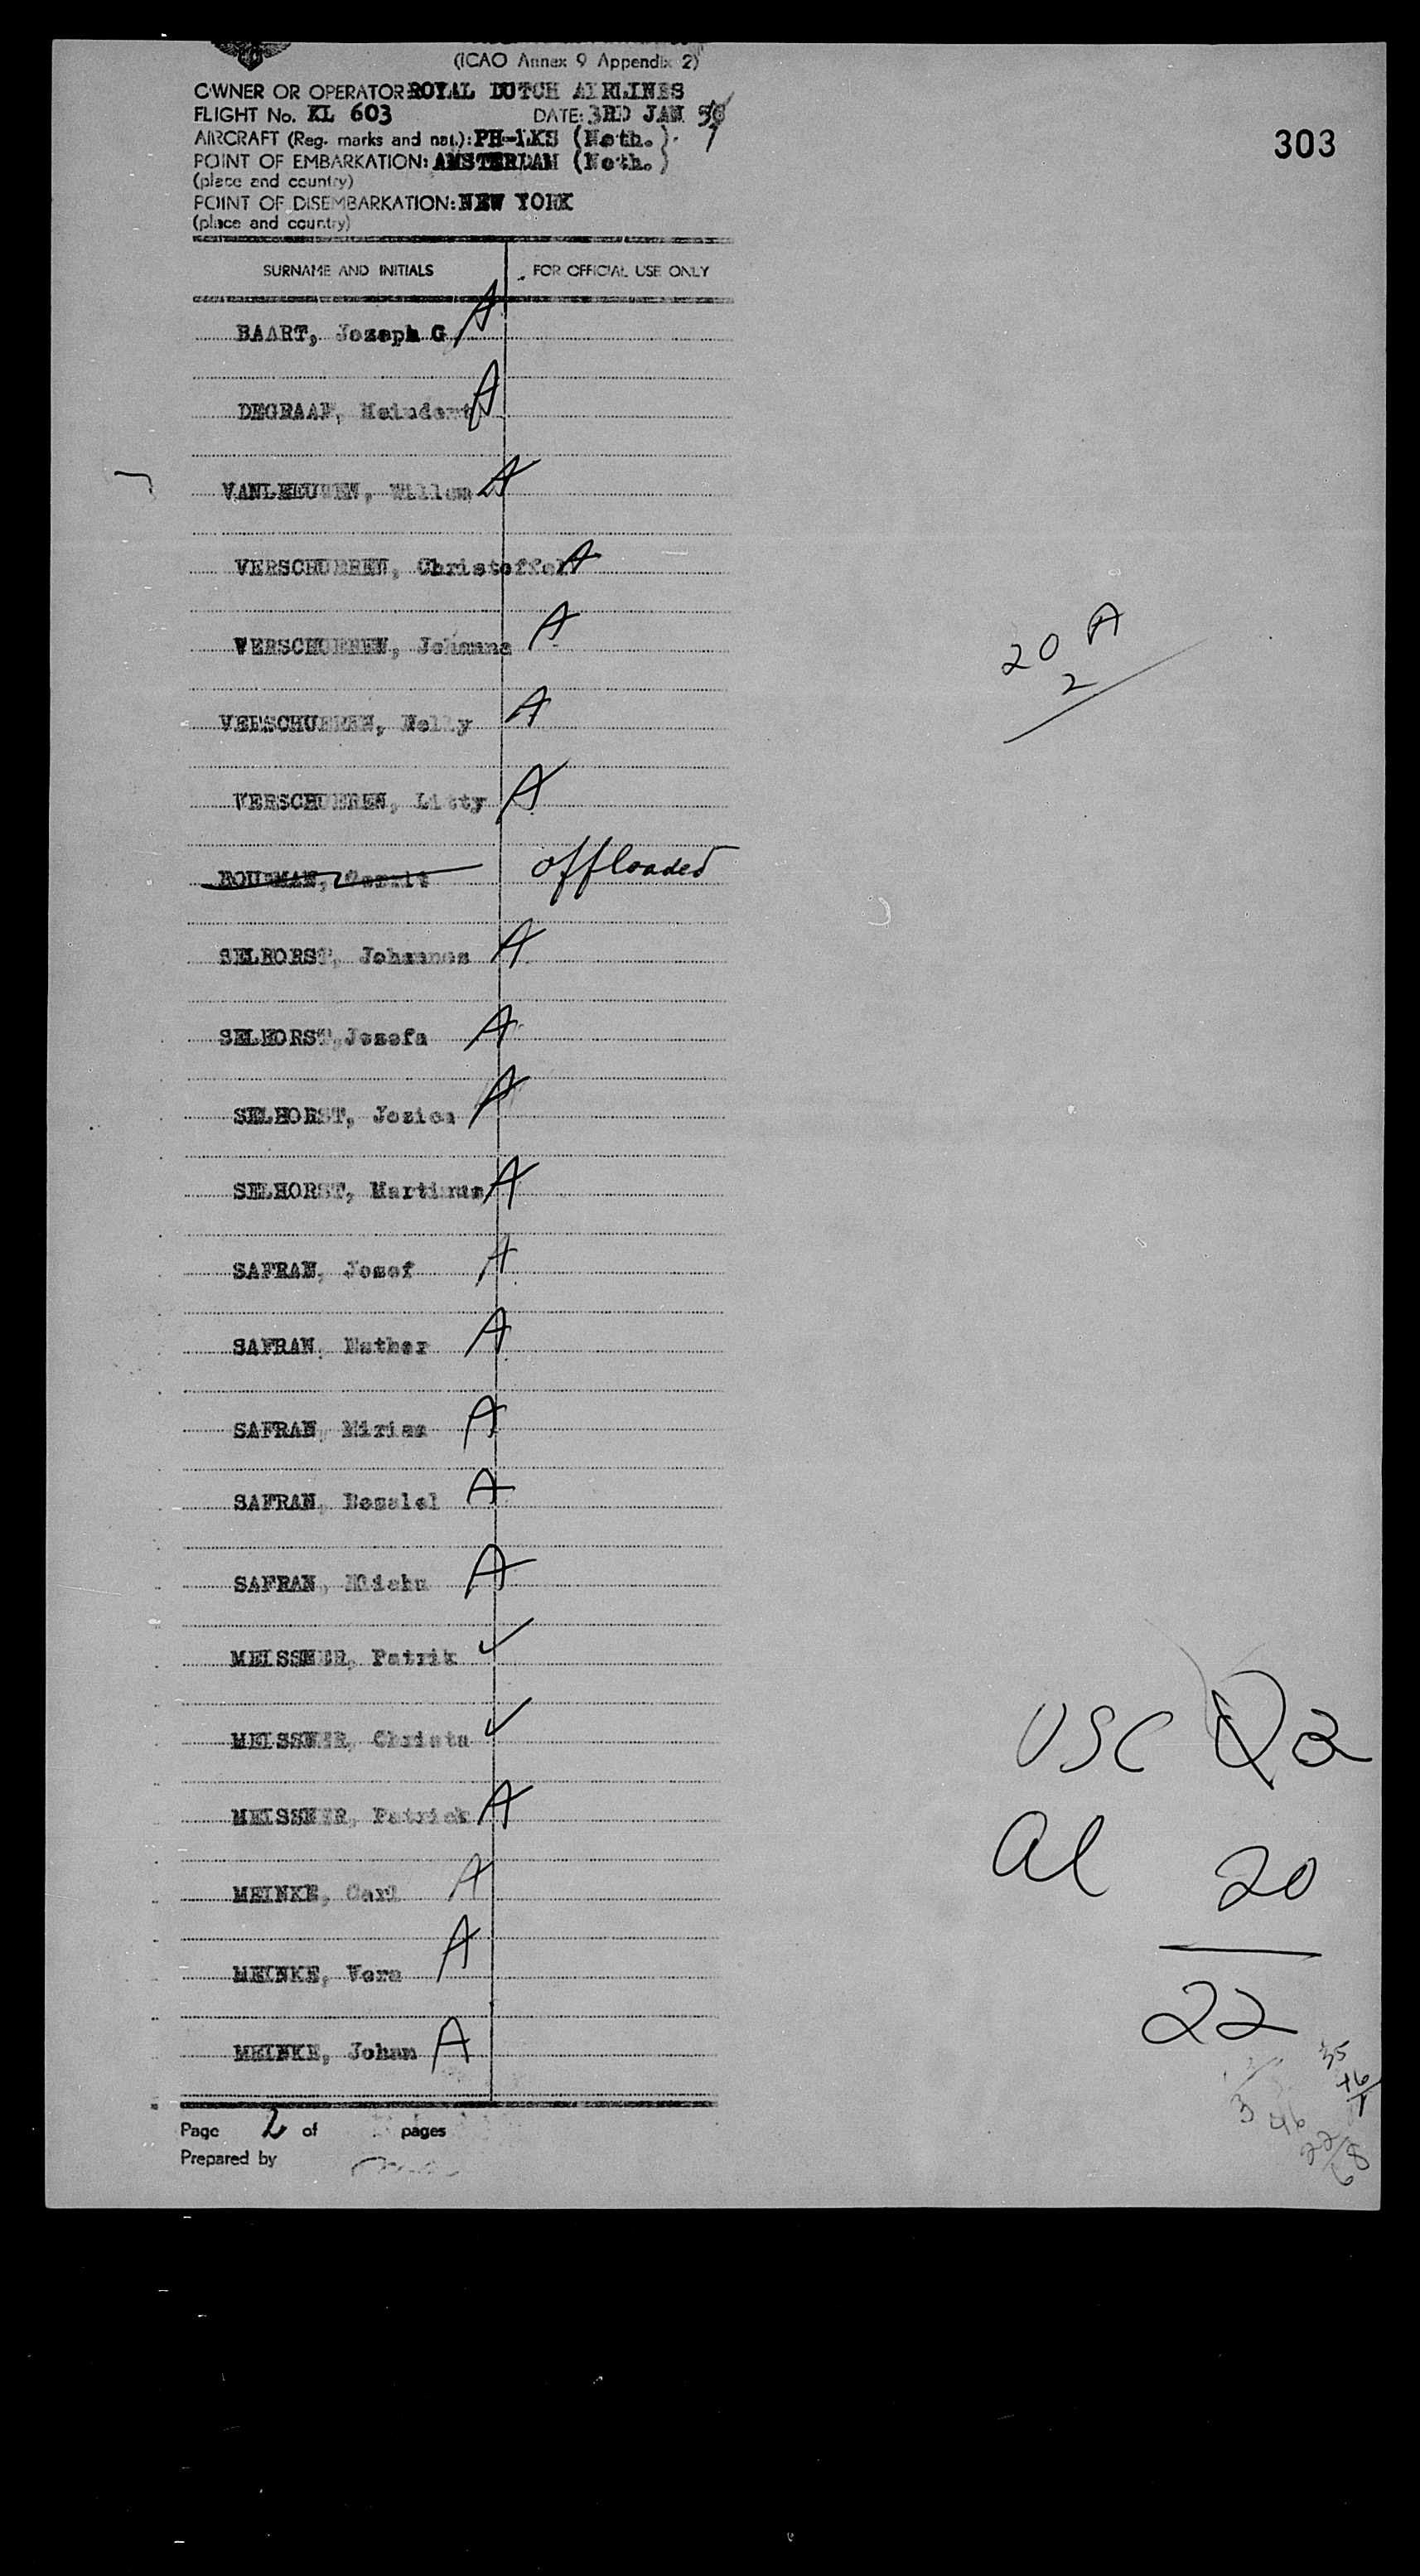 (ICAO Annex 9 Appendix 2)
303
OWNER OR OPERATOR ROYAL DUTCH AIRLINES
FLIGHT No. KL 603 DATE: 3RD JAN
AIRCRAFT (Reg. marks and nat.): PH-LKS (Neth.)
POINT OF EMBARKATION: AMSTERDAM (Neth.)
(place and country)
POINT OF DISEMBARKATION: NEW YORK
(place and country)
SURNAME AND INITIALS FOR OFFICIAL USE ONLY
BAART, Jozeph G. A
DEGRAAF, Meindert A
VANLEEUWEN, Willem A
VERSCHUEREN, Christoffel A
VERSCHUEREN, Johanna A
20 A
2
VERSCHUEREN, Nelly A
VERSCHUEREN, Litty A
BOUWMAN, Gerrit offloaded
SELHORST, Johannes A
SELHORST, Josefa A
SELHORST, A
SELHORST, Martinus A
SAFRAN, Josef A
SAFRAN, Esther A
SAFRAN, Miriam A
SAFRAN, Bezalel A
SAFRAN, A
MEISSNER, Patrik ✓
USC 2
MEISSNER, Christa ✓
MEISSNER, Patrick A
al 20
MEINKE, Carl A
MEINKE, Vera A
22
MEINKE, Johan A
35
46
22
68
Page 2 of pages
Prepared by